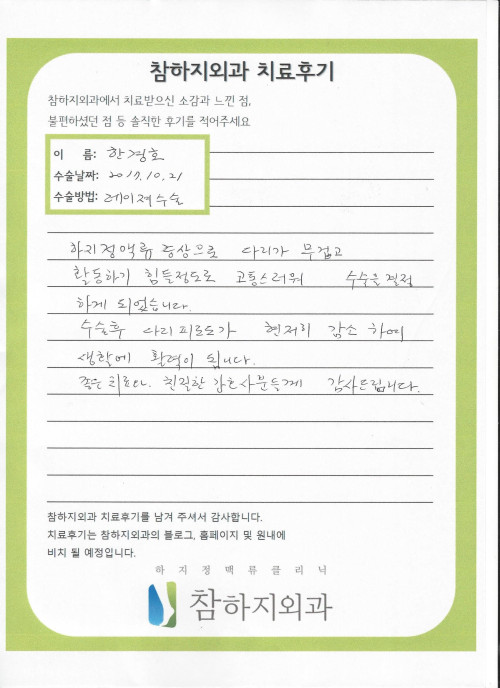 참하지외과 치료후기
참하지외과에서 치료받으신 소감과 느낀 점,
불편하셨던 점 등 솔직한 후기를 적어주세요
이 름: 한경호
수술날짜: 2017.10.21
수술방법: 레이져수술
하지정맥류 증상으로 다리가 무겁고
활동하기 힘들정도로 고통스러워 수수을 결정
하게 되었습니다.
수술후 다리피로도가 현저히 감소 하여
생활에 활력이 됩니다.
좋은 치료와. 친절한 간호사분들께 감사드립니다.
참하지외과 치료후기를 남겨 주셔서 감사합니다.
치료후기는 참하지외과의 블로그, 홈페이지 및 원내에
비치 될 예정입니다.
하지정맥류클리닉
참하지외과